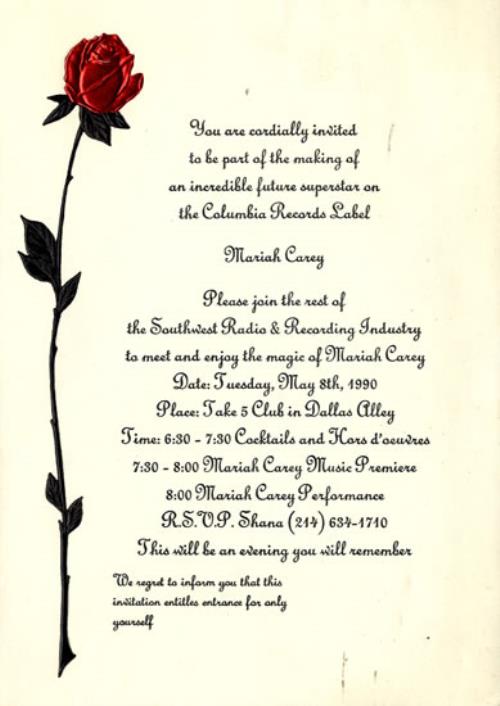 You are cordially invited
to be part of the making of
an incredible future superstar on
the Columbia Records Label
Mariah Carey
Please join the rest of
the Southwest Radio & Recording Industry
to meet and enjoy the magic of Mariah Carey
Date: Tuesday, May 8th, 1990
Place: Take 5 Club in Dallas Alley
Time: 6:30 - 7:30 Cocktails and Hors d'oeuvres
7:30 - 8:00 Mariah Carey Music Premiere
8:00 Mariah Carey Performance
R.S.V.P. Shana (214) 634-1710
This will be an evening you will remember
We regret to inform you that this
invitation entitles entrance for only
yourself